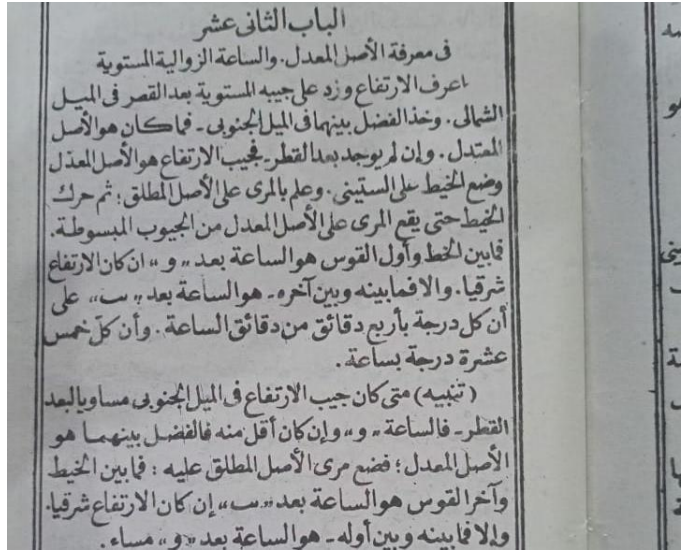 الباب الثانى عشر
فى معرفة الأصل المعدل. والساعة الزوالية المستوية
اعرف الارتفاع وزد على جيبه المستوية بعد القصر فى الميل
الشمالى. وخذ الفضل بينهما فى الميل الجنوبى ـ فما كان هو الأصل
المعتدل. وإن لم يوجد بعد القطر ـ فجيب الارتفاع هو الأصل المعدل
وضع الخيط على الستينى. وعلم بالمرى على الأصل المطلق؛ ثم حرك
الخيط حتى يقع المرى على الأصل المعدل من الجيوب المبسوطة.
فما بين الخط وأول القوس هو الساعة بعد „ و “ ان كان الارتفاع
شرقيا. والا فما بينه وبين آخره ـ هو الساعة بعد „ ىب “ على
أن كل درجة بأربع دقائق من دقائق الساعة. وأن كل خمس
عشرة درجة بساعة.
(تنبيه) متى كان جيب الارتفاع فى الميل الجنوبى مساويا لبعد
القطر ـ فالساعة „ و “ وإن كان أقل منه فالفضل بينهما هو
الأصل المعدل؛ فضع مرى الأصل المطلق عليه: فما بين الخيط
وآخر القوس هو الساعة بعد „ ىب “ إن كان الارتفاع شرقيا.
وإلا فما بينه وبين أوله ـ هو الساعة بعد „ و “ مساء.